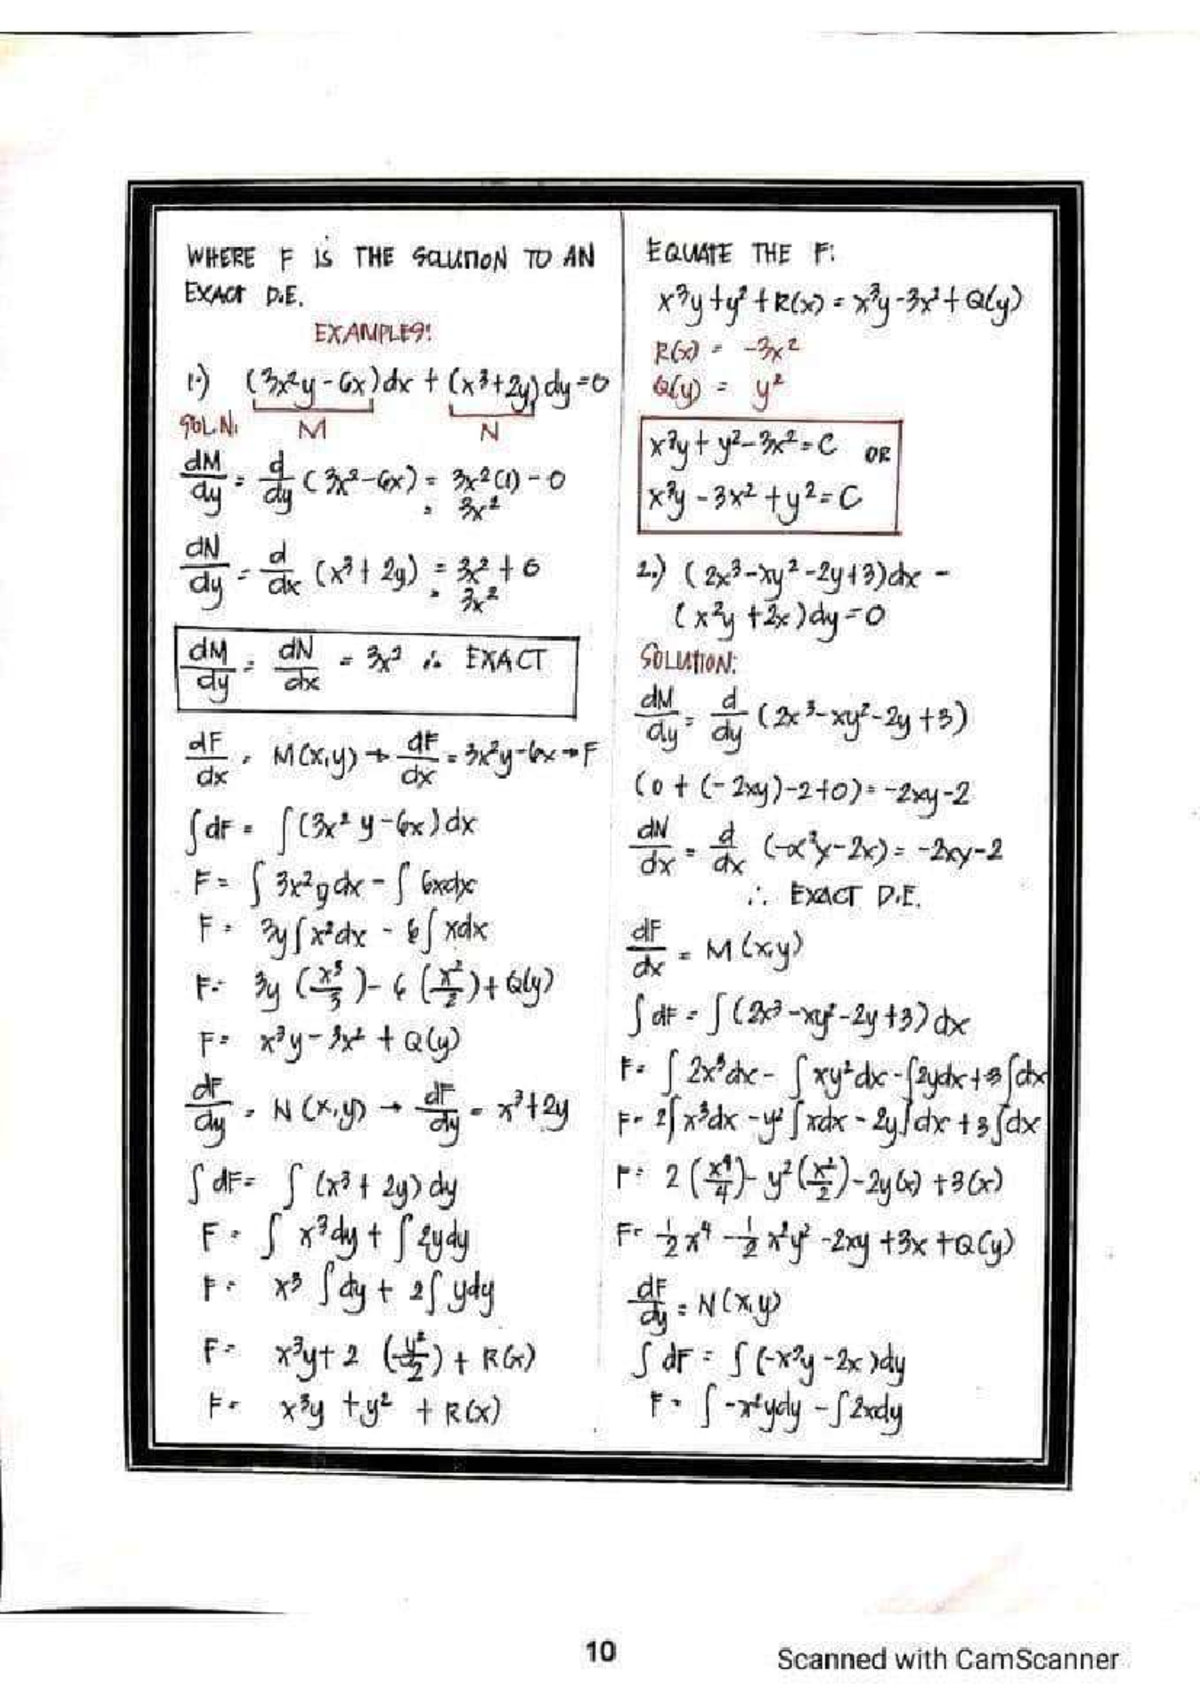 WHERE F IS THE SOLUTION TO AN
EXACT D.E.
EXAMPLES:
1.) (3x²y - 6x)dx + (x³+2y)dy = 0
SOL.N: M N
dM/dy = d/dy (3x²-6x) = 3x²(1) - 0
= 3x²
dN/dy = d/dx (x³+ 2y) = 3x² + 0
= 3x²
dM/dy = dN/dx = 3x² ∴ EXACT
dF/dx = M(x,y) → dF/dx = 3x²y-6x → F
∫dF = ∫(3x² y - 6x)dx
F = ∫ 3x²y dx - ∫ 6xdx
F = 3y∫x²dx - 6∫ xdx
F = 3y (x³/3) - 6 (x²/2) + Q(y)
F = x³y - 3x² + Q(y)
dF/dy = N(x,y) → dF/dy = x³+2y
∫ dF = ∫ (x³+ 2y) dy
F = ∫ x³dy + ∫ 2ydy
F = x³ ∫dy + 2∫ ydy
F = x³y + 2 (y²/2) + R(x)
F = x³y + y² + R(x)
EQUATE THE F:
x³y + y² + R(x) = x³y - 3x² + Q(y)
R(x) = -3x²
Q(y) = y²
x³y + y² - 3x² = C OR
x³y - 3x² + y² = C
2.) (2x³-xy²-2y+3)dx -
(x²y + 2x)dy = 0
SOLUTION:
dM/dy = d/dy (2x³-xy²-2y+3)
(0 + (-2xy)-2+0) = -2xy-2
dN/dx = d/dx (-x²y-2x) = -2xy-2
∴ EXACT D.E.
dF/dx = M(x,y)
∫ dF = ∫(2x³-xy²-2y+3)dx
F = ∫ 2x³dx - ∫ xy²dx - ∫2ydx + 3∫dx
F = 2∫x³dx - y²∫xdx - 2y∫dx + 3∫dx
F = 2 (x⁴/4) - y²(x²/2) - 2y(x) + 3(x)
F = ½ x⁴ - ½ x²y² - 2xy + 3x + Q(y)
dF/dy = N(x,y)
∫ dF = ∫ (-x²y - 2x)dy
F = ∫ -x²ydy - ∫2xdy
10
Scanned with CamScanner